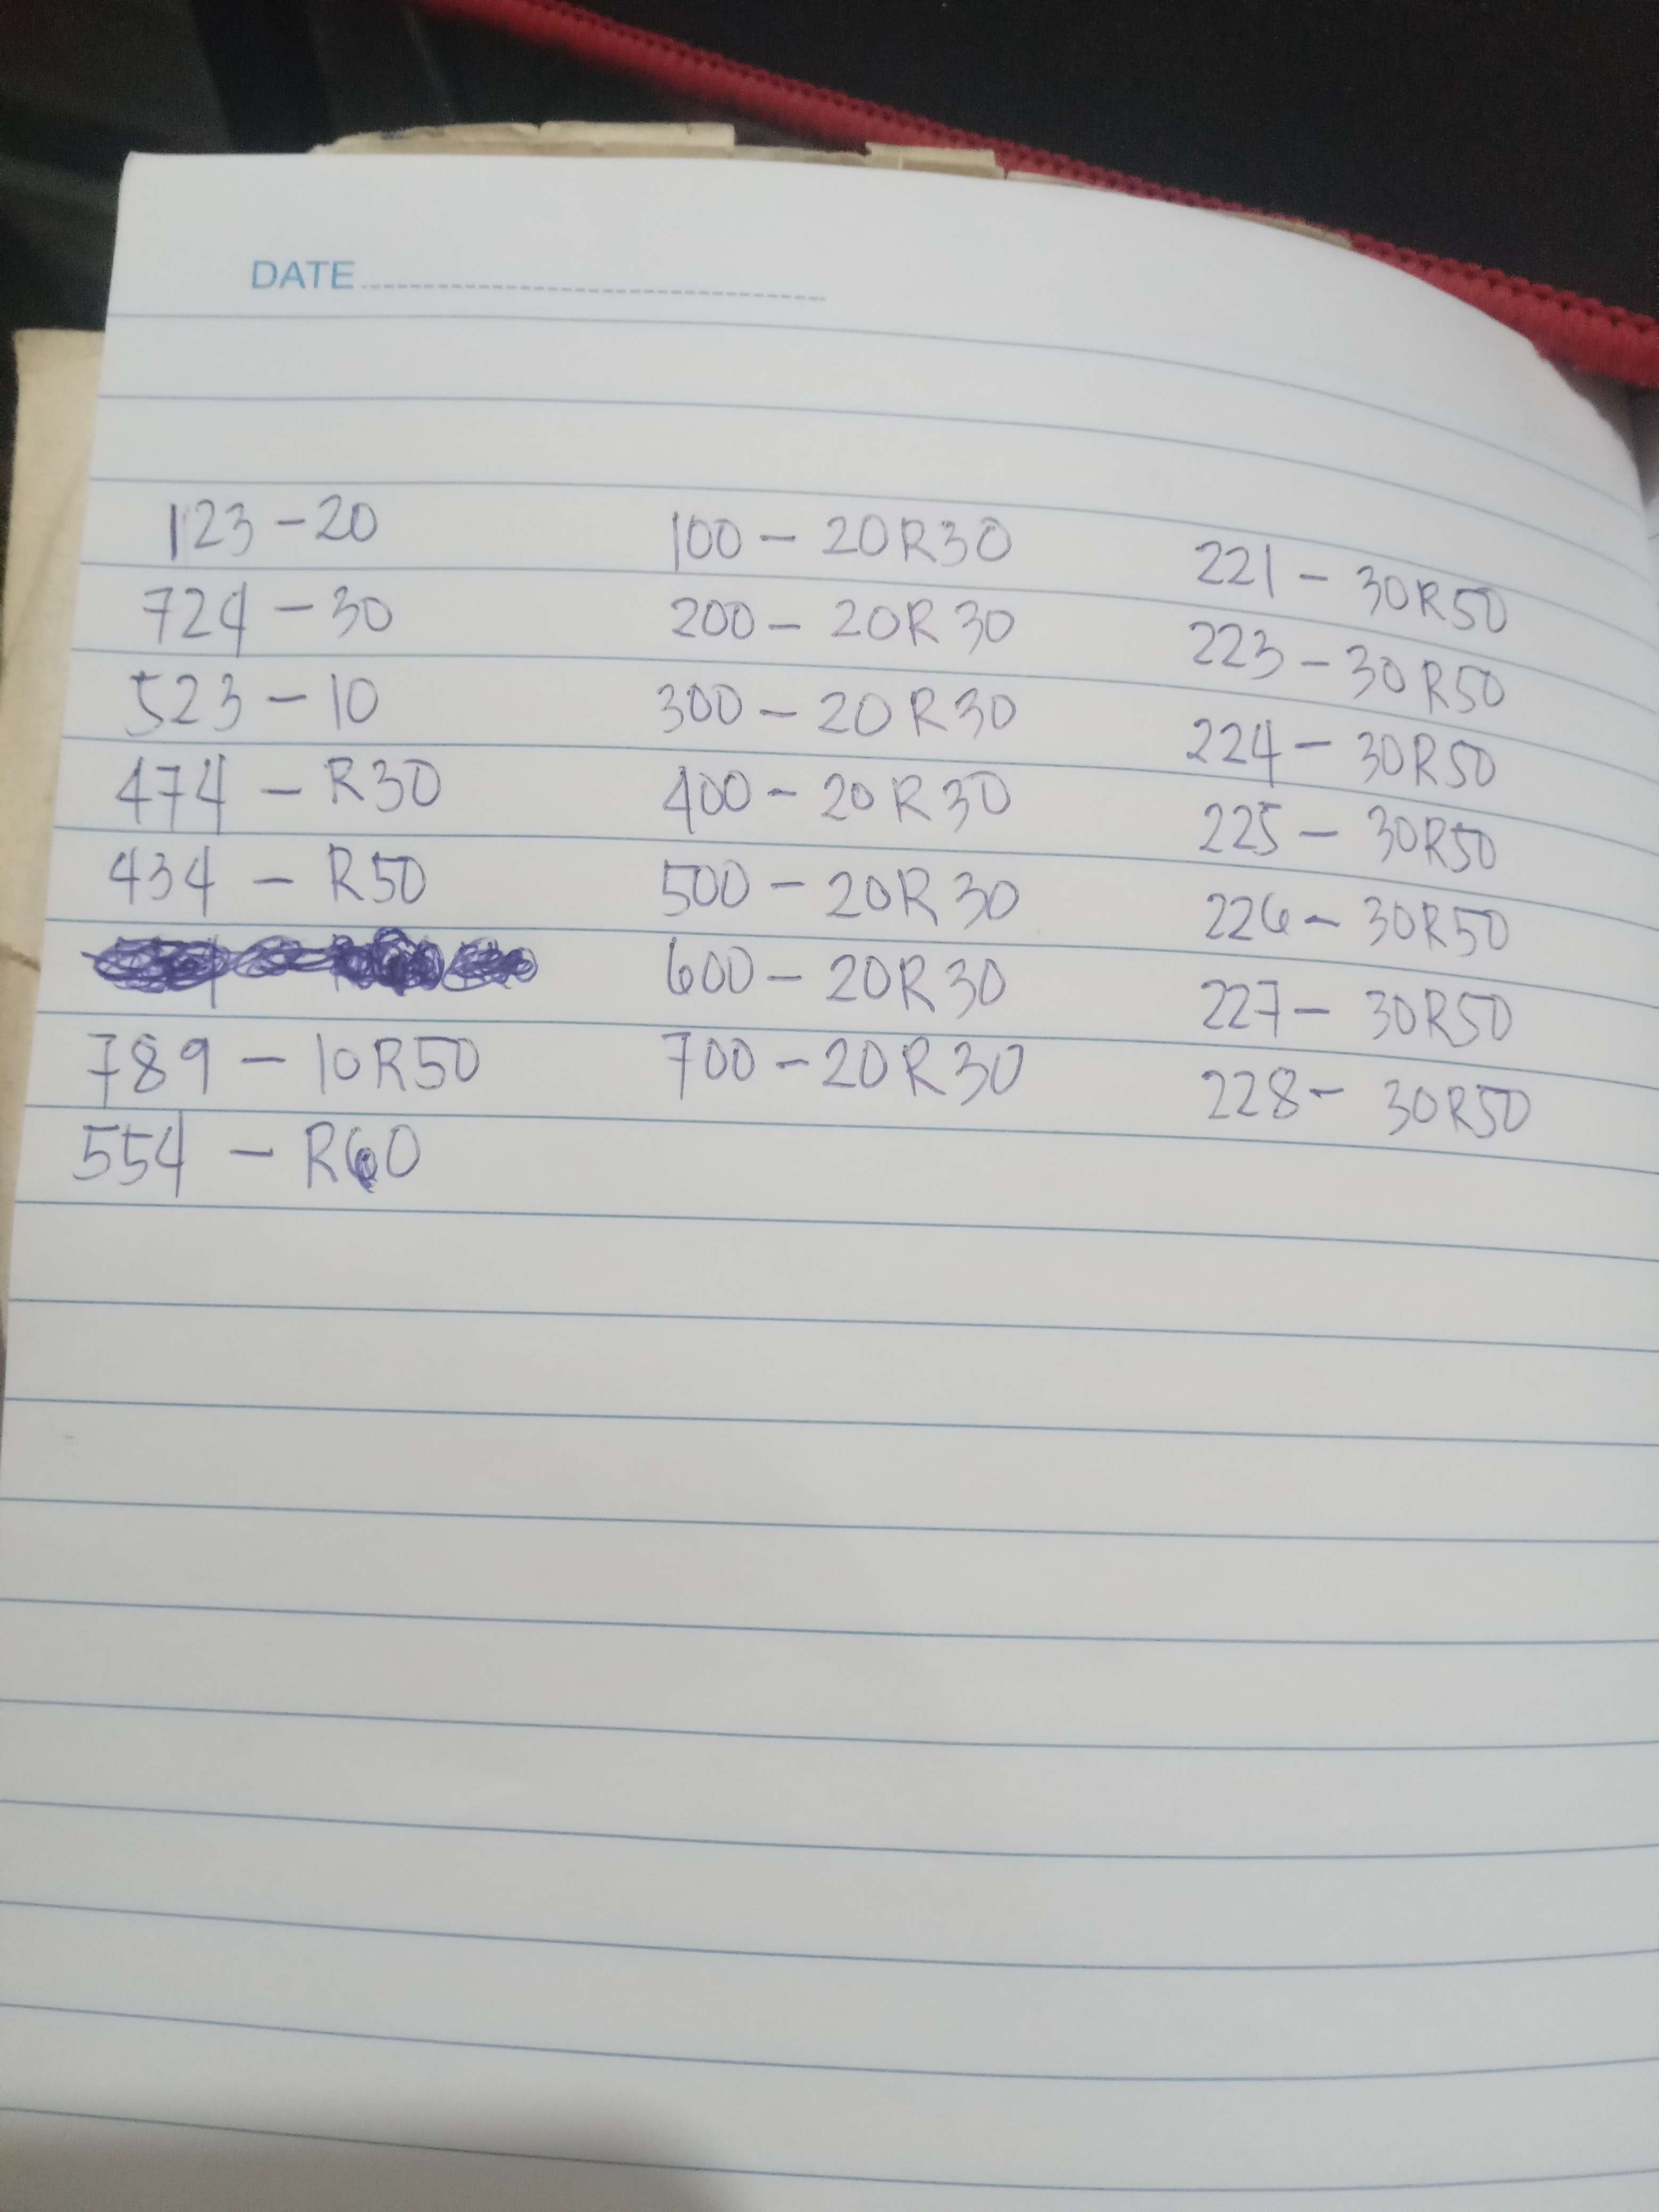 DATE
123 - 20
724 - 30
523 - 10
474 - R30
434 - R50
789 - 10R50
554 - R60
100 - 20R30
200 - 20R30
300 - 20R30
400 - 20R30
500 - 20R30
600 - 20R30
700 - 20R30
221 - 30R50
223 - 30R50
224 - 30R50
225 - 30R50
226 - 30R50
227 - 30R50
228 - 30R50